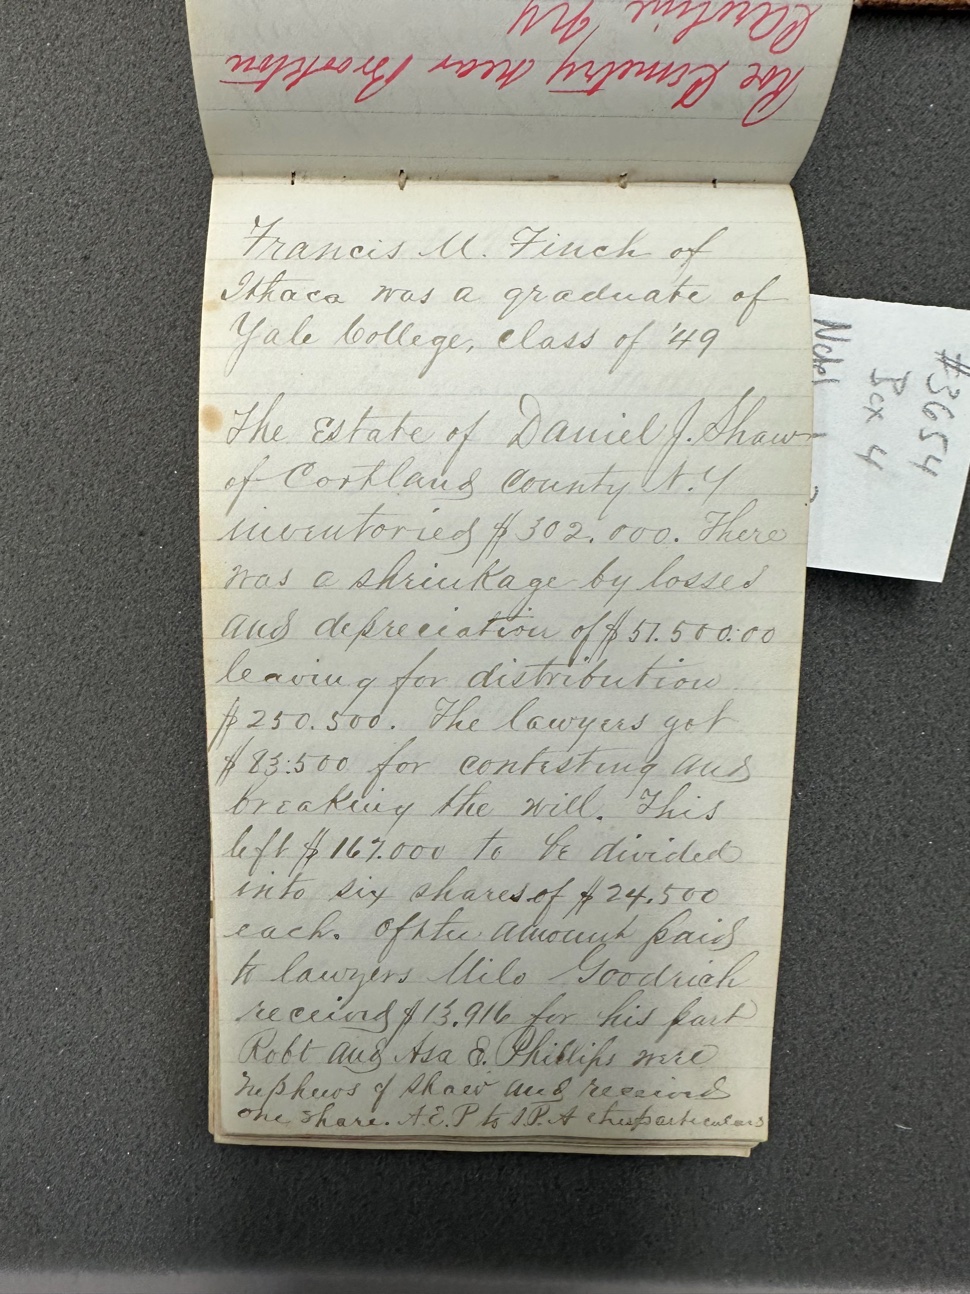 Roe Cemetry near Brookton
Caroline NY
Francis M. Finch of
Ithaca was a graduate of
Yale College, class of '49
The Estate of Daniel J. Shaw
of Cortland County N.Y
inventoried $302.000. There
was a shrinkage by losses
and depreciation of $51.500:00
leaving for distribution
$250.500. The lawyers got
$83:500 for contesting and
breaking the will. This
left $167.000 to be divided
into six shares of $24.500
each. Of the amount paid
to lawyers Milo Goodrich
received $13.916 for his part
Robt and Asa E. Phillips were
nephews of Shaw and received
one share. A.E.P to
particulars
#3654
Box 4